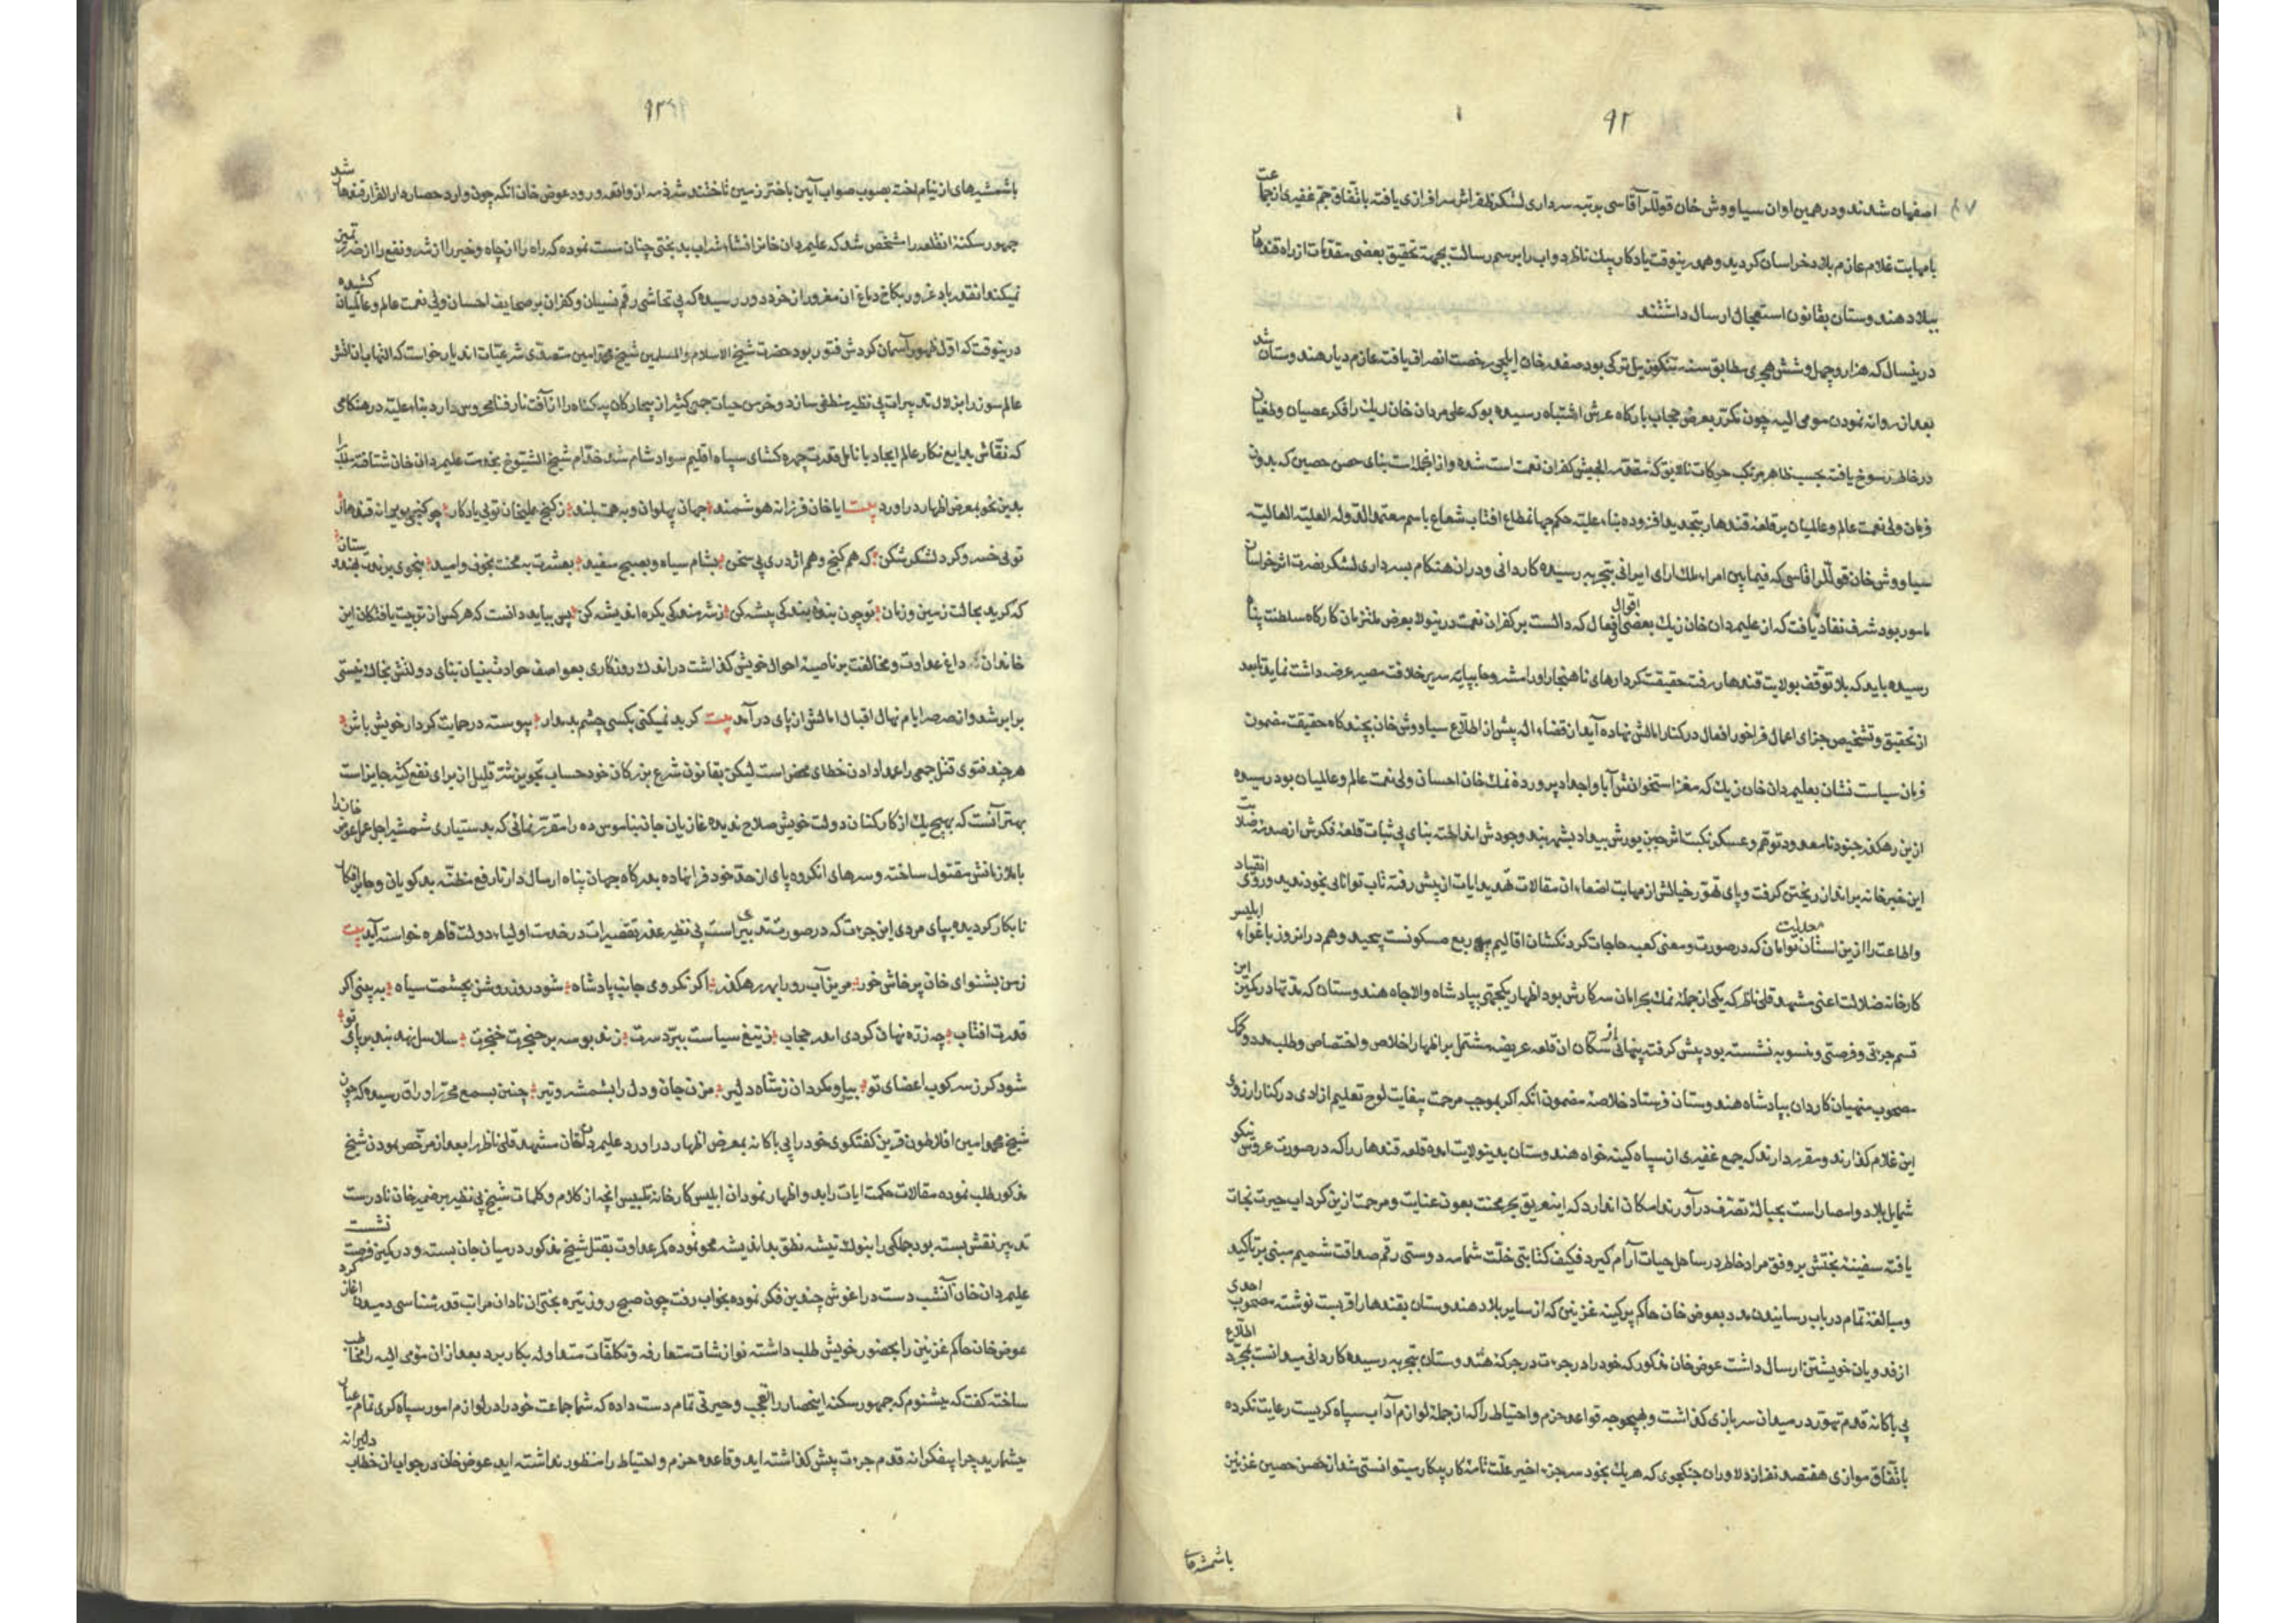 ۹۲
اصفهان شدند و در همین اوان سیاووش خان قوللر آقاسی برتبه سرداری لشکر ظفر اثر سرافرازی یافته باتفاق جم غفیری از جماعت
با مهابت غلام عازم بلاد خراسان کردید و هم درینوقت یادکار بیک ناظر دواب را برسم رسالت بجهة تحقیق بعضی مقدمات از راه قندهار
ببلاد هندوستان بقانون استعجال ارسال داشتند
درینسال که هزار و چهل و شش هجری مطابق سنه ترکی بود صفدر خان ایلچی رخصت انصراف یافته عازم دیار هندوستان شد
بعد از روانه نمودن مومی الیه چون مکرر بعرض حجاب بارکاه عرش اشتباه رسیده بو که علی مردان خان زیک را فکر عصیان و طغیان
در خاطر رسوخ یافته بحسب ظاهر مرتکب حرکات نالایق که مقدمه الجیش کفران نعمت است شده و از انجمله است بنای حصن حصین که بدون
فرمان ولی نعمت عالم و عالمیان بر قلعه قندهار بتجدید افزوده بناء علیه حکم جهانمطاع افتاب شعاع باسم معتمد الدوله العلیة العالیة
سیاووش خان قوللر اقاسی که فیما بین امراء ملک ارای ایرانی بتجربه رسیده کاردانی و در ان هنکام بسرداری لشکر نصرت اثر خراسان
مامور بود شرف نفاد یافت که از علیمردان خان زیک بعضی اقوال و افعال که دالست بر کفران نعمت درینولا بعرض ملتزمان کارکاه سلطنت پناه
رسیده باید که بلا توقف بولایت قندهار رفته حقیقت کردارهای ناهنجار او را مشروحا بپایه سریر خلافت مصیر عرضه داشت نماید تا بعد
از تحقیق و تشخیص جزای اعمال فراخور افعال در کنار امالش نهاده آید از قضاء اله پیش از اطلاع سیاووش خان بچند کاه حقیقت مضمون
فرمان سیاست نشان بعلیمردان خان زیک که مغز استخوانش آبا و اجداد پرورده نمک خان احسان ولی نعمت عالم و عالمیان بود رسیده
ازین رهکذر جنود نامعدود توهم و عسکر نکبت اثر جبن یورش بیداد بشهربند وجودش انداخته بنای بی ثبات قلعه فکرش از صدمه صلابت
این خبر خانه برانداز ریختن کرفت و پای تهور خیالش از مهابت اصغاء ان مقالات تهدید ایات از پیش رفته تاب توانائی بخود ندید و روی انقیاد
واطاعت را ازین استان معدلت توامان که در صورت و معنی کعبه حاجات کردنکشان اقالیم ربع مسکونست پیچید و هم در انروز باغواء ابلیس
کارخانه ضلالت اعنی مشهد قلی ناظر که یکی از جمله نمک بحرامان سرکارش بود اظهار یکجهتی بپادشاه والاجاه هندوستان که مدتها در کمین این
قسم جرمی و فرصتی و منسوبه نشسته بود پیش کرفته پنهانی از سکان ان قلعه عریضه مشتمل بر اظهار اخلاص و اختصاص و طلب مدد و کمک
مصحوب منهیان کاردان بپادشاه هندوستان فرستاد خلاصه مضمون انکه اکر بموجب مرحمت بیغایت لوح تعلیم ازادی در کنار ارزوی
این غلام کذارند و مقرر دارند که جمع غفیری از سپاه کینه خواه هندوستان بدینولایت امده قلعه قندهار را که در صورت عروس نیکو
شمایل بلاد و امصار است بحباله تصرف درآورند امکان اندارد که این غریق بحر محنت بعون عنایت و مرحمت ازین کرداب حیرت نجات
یافته سفینه بختش بر وفق مراد خاطر در ساحل حیات آرام کیرد فکیف کتابتی خلت شمامه دوستی رقم صداقت شمیم مبنی بر تاکید
و مبالغه تمام در باب رسانیدن مدد بعوض خان حاکم پرکینه غزنین که از سایر بلاد هندوستان بقندهار اقربست نوشته مصحوب احدی
از فدویان خویشتن ارسال داشت عوض خان مذکور که خود را در جرءت در جرکه هند وستان بتجربه رسیده کاردانی میدانست بمجرد اطلاع
بی باکانه قدم تهور در میدان سربازی کذاشت و بهیچوجه قواعد حزم و احتیاط را که از جمله لوازم آداب سپاه کریست رعایت نکرده
باتفاق موازی هفتصد نفر از دلاوران جنکجوی که هریک بخود سر جزء اخیر علت تامه کار پیکار میتوانستی شد از حصن حصین غزنین
باشمشیرهای
۹۳
باشمشیرهای از نیام اخته بصوب صواب آیین باختر زمین تاختند شرذمه از واقعه ورود عوض خان انکه چون وارد حصار دار القرار قندهار شد
جمهور سکنه انقلعه را مشخص شد که علیمردان خان را نشاء شراب بدبختی چنان مست نموده که راه را از چاه و خیر را از شر و نفع را از ضرر تمیز
نمیکند و انقدر باد غرور بکاخ دماغ ان مغرور از خرد دور رسیده که بی تحاشی رقم نسیان و کفران بر صحایف احسان ولی نعمت عالم و عالمیان کشیده
درینوقت که اول ظهور آسمان کردش فتور بود حضرت شیخ الاسلام والمسلمین شیخ محمد امین متصدی شرعیات اندیار خواست که التهاب نائره
عالم سوز را بزلال تدبیرات بی نظیر منطفی سازد و خرمن حیات جمی کثیر از بیچارکان بیکناه را از آفت نار فنا محروس دارد بناء علیه در هنکامی
که نقاش بدایع نکار عالم ایجاد بانامل قدرت چهره کشای سپاه اقلیم سواد شام شد خدام شیخ الشیوخ بخدمت علیمردان خان شتافته
بدین نحو بمعرض اظهار دراورد بیت ایا خان فرزانه هوشمند جهان پهلوان و به همت بلند ز کنج علیخان توی یادکار چو کنجی بویرانه قندهار
توی خسرو کرد لشکر شکن که هم کنج و هم اژدری بی سخن بشام سیاه و بصبح سفید بعشرت بمحنت بخوف و امید
که کرید بحالت زمین و زمان تو چون بنده بندکی پیشه کن ز شرمندکی یکره اندیشه کن پس بباید دانست که هر کس از تربیت یافتکان این
خاندان داغ عداوت و مخالفت بر ناصیه احوال خویش کذاشت در اندک روزکاری بعواصف حوادث بنیان بنای دولتش بخاک نیستی
برابر شد و از صرصر ایام نهال اقبال امالش از پای درآمد بیت کر بد نمیکنی بکسی چشم بد مدار پیوسته در حمایت کردار خویش باش
هرچند فتوی قتل جمی را عمدا دادن خطای محض است لیکن بقانون شرع بزرکان خود حساب تجویز شر قلیل از برای نفع کثیر جایز است
بهتر آنست که بهیچ یک از کارکنان دولت خویش صلاح ندیده غازیان جانبناموس ده را مقرر نمائی که بدستیاری شمشیر اجل عمل عوض خان را
با ملازمانش مقتول ساخته و سرهای انکروه پای از حد خود فرا نهاده بدرکاه جهان پناه ارسال دار تا رفع مظنه بدکویان و
نابکار کردیده بپای مردی این جرءت که در صورت تدبیراست بی نظیر عذر تقصیرات در خدمت اولیاء دولت قاهره خواسته آید بیت
ز من بشنو ای خان پرخاش خور مریز آب رو را بهر رهکذر اکر نکروی جانب پادشاه شود روز روشن بچشمت سیاه به بینی اکر
قدرت افتاب چه ذره نهان کردی اندر حجاب ز تیغ سیاست ببرد سرت زند بوسه بر حنجرت خنجرت سلاسل نهد بند بر پای تو
شود کرز سرکوب اعضای تو بیا و مکردان ز شاه دلیر مزن جان و دل را بشمشیر و تیر چنین بسمع محرر اوراق رسیده که چون
شیخ محمد امین افلاطون قرین کفتکوی خود را بی باکانه بمعرض اظهار دراورد علیمردان خان مشهد قلی ناظر را بعد از مرخص نمودن شیخ
مذکور طلب نموده مقالات حکمت ایات را بد و اظهار نمود ان ابلیس کارخانه تلبیس انچه از کلام و کلمات شیخ بی نظیر بر ضمیر خان نادرست
تدبیر نقش بسته بود جملکی را بنوک تیشه نطق بد اندیشه محو نموده کمر عداوت بقتل شیخ مذکور در میان جان بسته و در کمین فرصت نشست
علیمردان خان آنشب دست در اغوش چندین فکر نموده بخواب رفت چون صبح روز تیره بختی ان نادان مراتب قدر شناسی دمیدن اغاز کرد
عوض خان حاکم غزنین را بحضور خویش طلب داشته نوازشات متعارفه و تکلفات متداوله بکار برد بعد از ان مومی الیه را مخاطب
ساخته کفت که میشنوم که جمهور سکنه اینحصار را تعجب و حیرتی تمام دست داده که شما جماعت خود را در لوازم امور سپاه کری تمام عیار
میشمارید چرا بیفکرانه قدم جرءت پیش کذاشته اید و قاعده حزم و احتیاط را منظور نداشته اید عوض خان در جواب ان خطاب دلیرانه